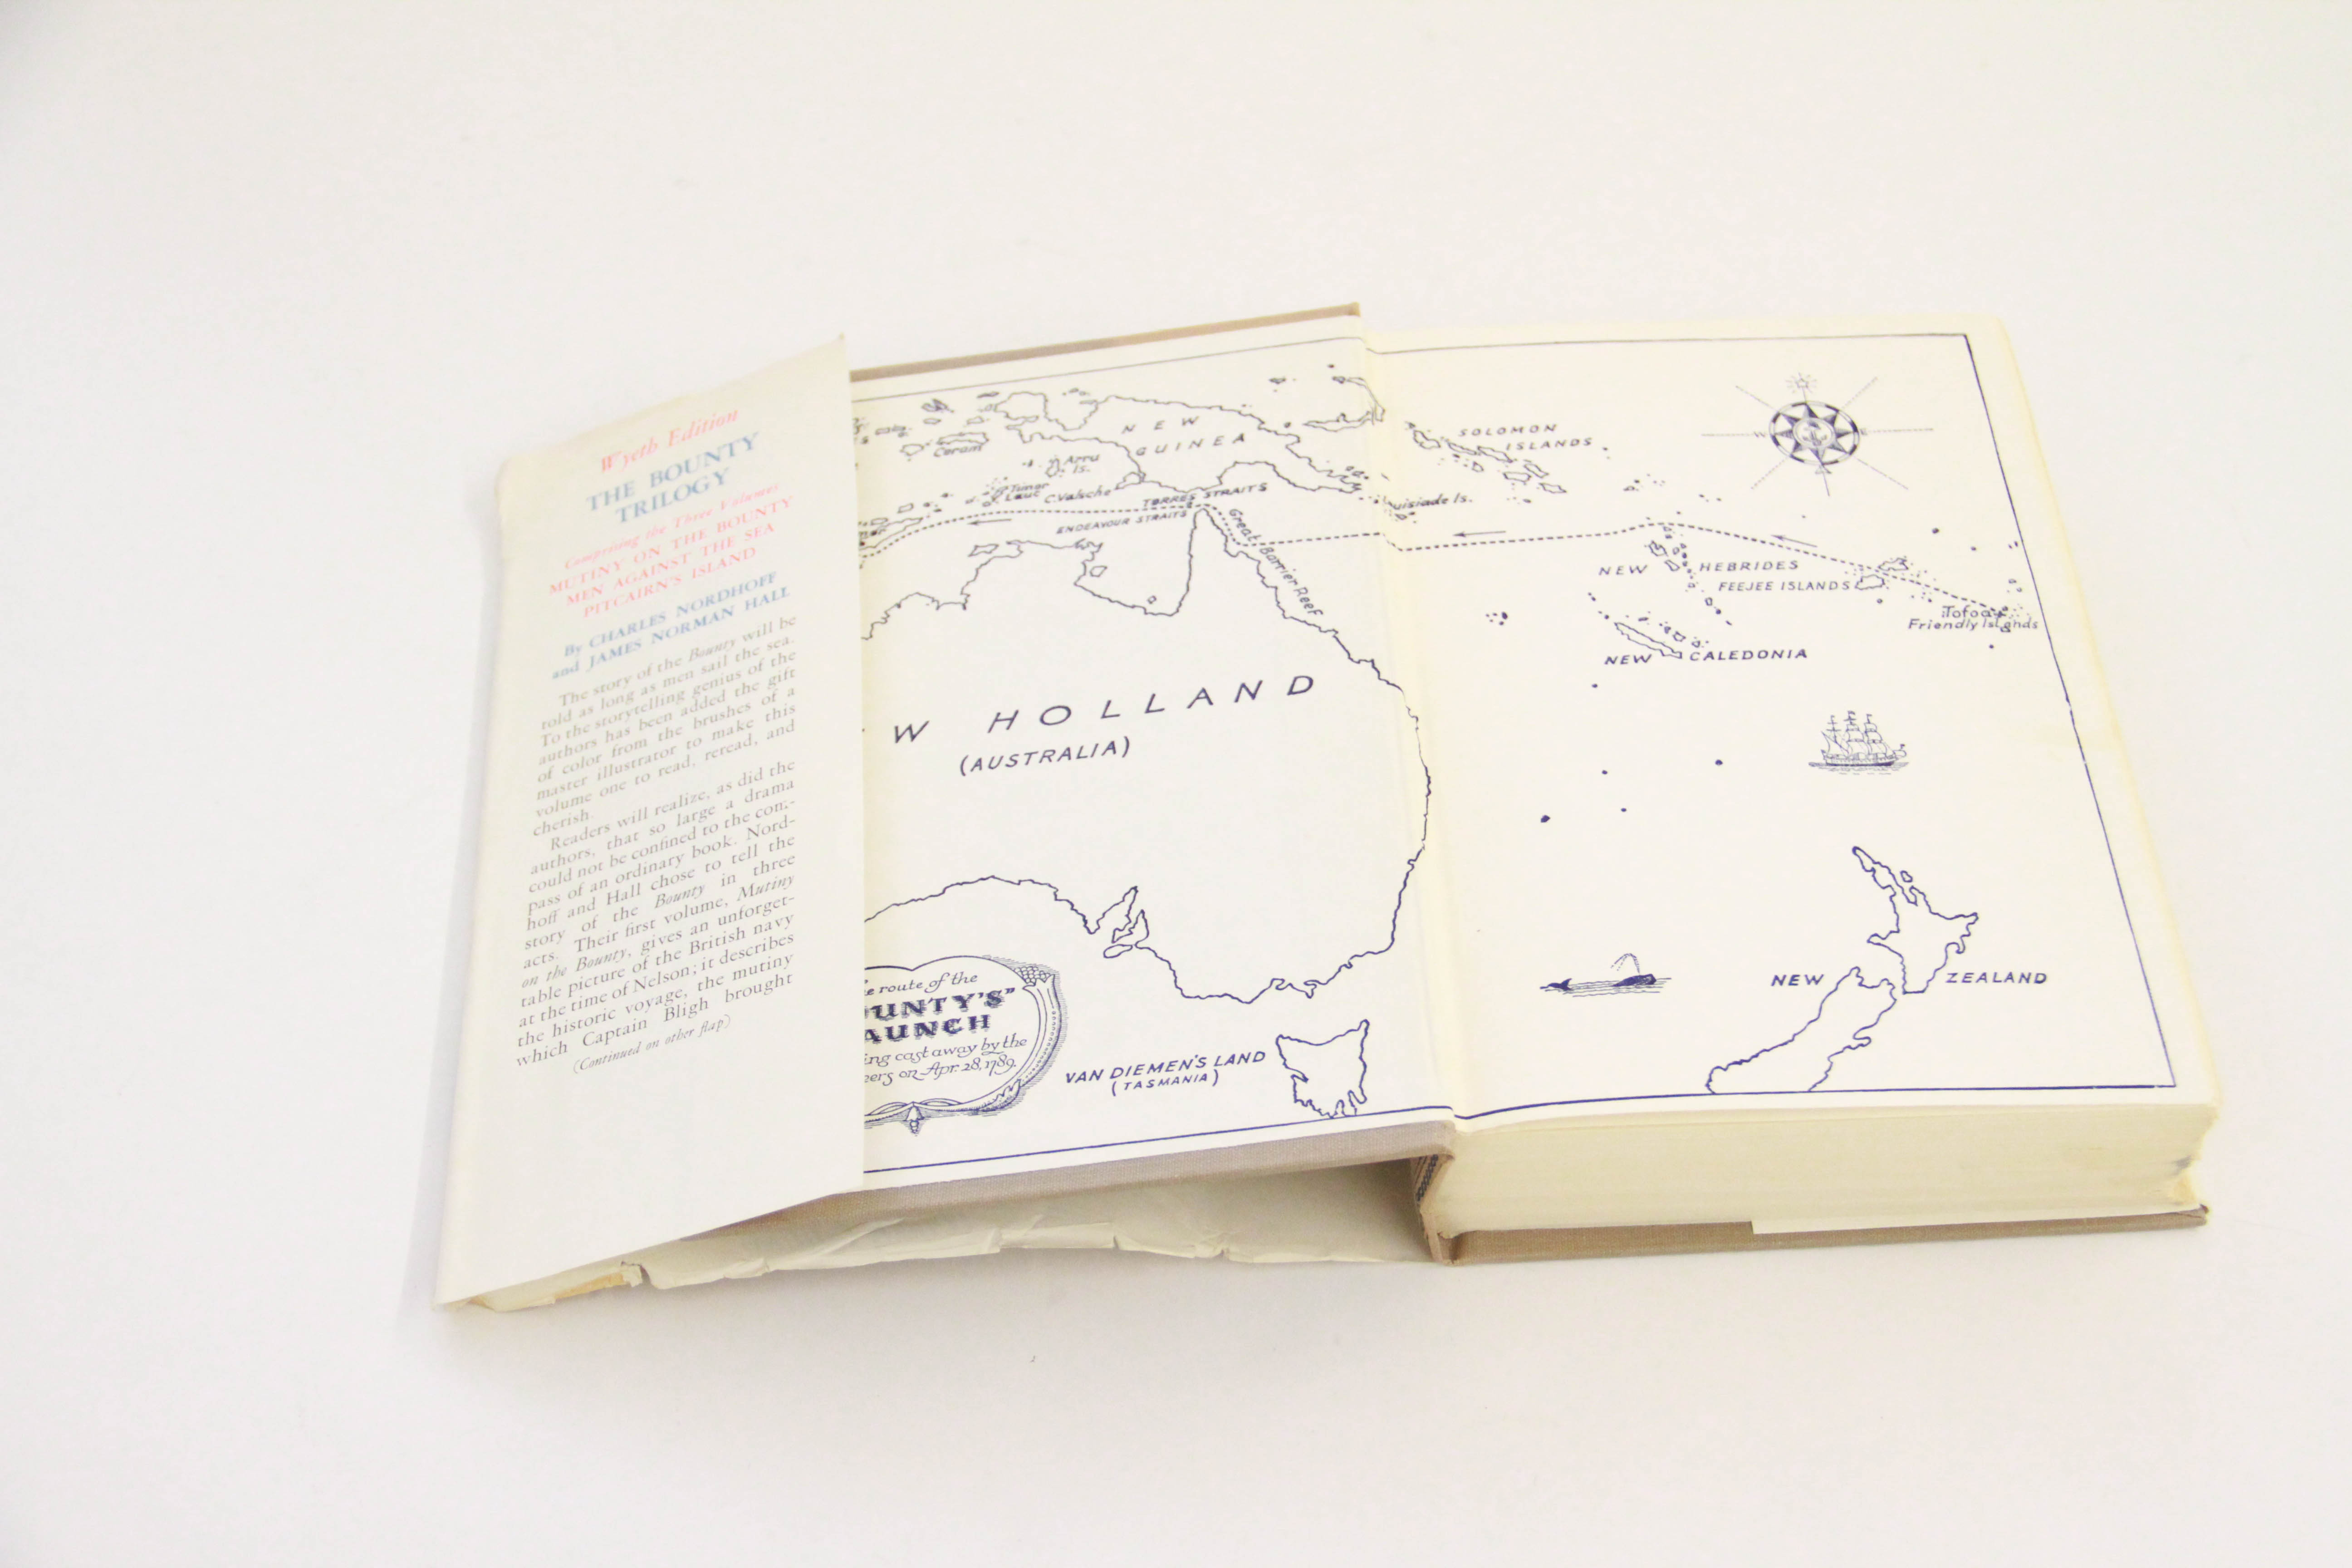 Wyeth Edition
THE BOUNTY
TRILOGY
Comprising the Three Volumes
MUTINY ON THE BOUNTY
MEN AGAINST THE SEA
PITCAIRN'S ISLAND
By CHARLES NORDHOFF
and JAMES NORMAN HALL
The story of the Bounty will be
told as long as men sail the sea.
To the storytelling genius of the
authors has been added the gift
of color from the brushes of a
master illustrator to make this
volume one to read, reread, and
cherish.
Readers will realize, as did the
authors, that so large a drama
could not be confined to the com-
pass of an ordinary book. Nord-
hoff and Hall chose to tell the
story of the Bounty in three
acts. Their first volume, Mutiny
on the Bounty, gives an unforget-
table picture of the British navy
at the time of Nelson; it describes
the historic voyage, the mutiny
which Captain Bligh brought
(Continued on other flap)
NEW
GUINEA
Ceram
Arru
Is.
Timor
Laut
C.Valsche
TORRES STRAITS
ENDEAVOUR STRAITS
Great Barrier Reef
W HOLLAND
(AUSTRALIA)
e route of the
UNTY'S"
AUNCH
ing cast away by the
ers on Apr. 28, 1789.
VAN DIEMEN'S LAND
(TASMANIA)
SOLOMON
ISLANDS
uisiade Is.
W
E
NEW HEBRIDES
FEEJEE ISLANDS
Tofoa
Friendly Islands
NEW CALEDONIA
NEW ZEALAND